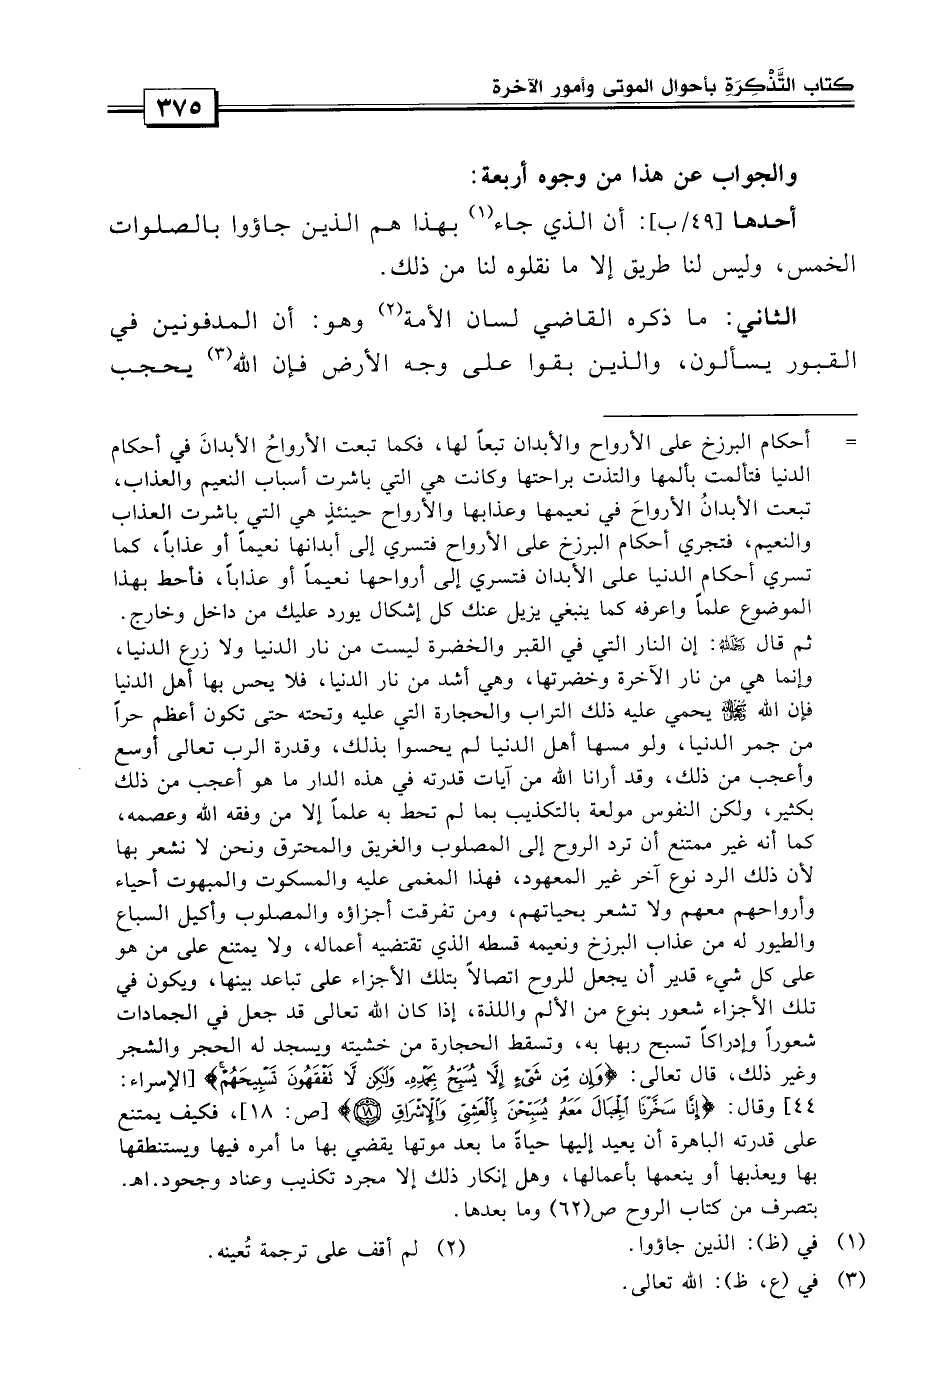 كتاب التَّذْكِرَةِ بأحوال الموتى وأمور الآخرة
٣٧٥
والجواب عن هذا من وجوه أربعة:
أحدها [٤٩/ب]: أن الذي جاء(١) بهذا هم الذين جاؤوا بالصلوات
الخمس، وليس لنا طريق إلا ما نقلوه لنا من ذلك.
الثاني: ما ذكره القاضي لسان الأمة(٢) وهو: أن المدفونين في
القبور يسألون، والذين بقوا على وجه الأرض فإن الله(٣) يحجب
= أحكام البرزخ على الأرواح والأبدان تبعاً لها، فكما تبعت الأرواحُ الأبدانَ في أحكام
الدنيا فتألمت بألمها والتذت براحتها وكانت هي التي باشرت أسباب النعيم والعذاب،
تبعت الأبدانُ الأرواحَ في نعيمها وعذابها والأرواح حينئذٍ هي التي باشرت العذاب
والنعيم، فتجري أحكام البرزخ على الأرواح فتسري إلى أبدانها نعيماً أو عذاباً، كما
تسري أحكام الدنيا على الأبدان فتسري إلى أرواحها نعيماً أو عذاباً، فأحط بهذا
الموضوع علماً واعرفه كما ينبغي يزيل عنك كل إشكال يورد عليك من داخل وخارج.
ثم قال رحمه الله: إن النار التي في القبر والخضرة ليست من نار الدنيا ولا زرع الدنيا،
وإنما هي من نار الآخرة وخضرتها، وهي أشد من نار الدنيا، فلا يحس بها أهل الدنيا
فإن الله ﷻ يحمي عليه ذلك التراب والحجارة التي عليه وتحته حتى تكون أعظم حراً
من جمر الدنيا، ولو مسها أهل الدنيا لم يحسوا بذلك، وقدرة الرب تعالى أوسع
وأعجب من ذلك، وقد أرانا الله من آيات قدرته في هذه الدار ما هو أعجب من ذلك
بكثير، ولكن النفوس مولعة بالتكذيب بما لم تحط به علماً إلا من وفقه الله وعصمه،
كما أنه غير ممتنع أن ترد الروح إلى المصلوب والغريق والمحترق ونحن لا نشعر بها
لأن ذلك الرد نوع آخر غير المعهود، فهذا المغمى عليه والمسكوت والمبهوت أحياء
وأرواحهم معهم ولا تشعر بحياتهم، ومن تفرقت أجزاؤه والمصلوب وأكيل السباع
والطيور له من عذاب البرزخ ونعيمه قسطه الذي تقتضيه أعماله، ولا يمتنع على من هو
على كل شيء قدير أن يجعل للروح اتصالاً بتلك الأجزاء على تباعد بينها، ويكون في
تلك الأجزاء شعور بنوع من الألم واللذة، إذا كان الله تعالى قد جعل في الجمادات
شعوراً وإدراكاً تسبح ربها به، وتسقط الحجارة من خشيته ويسجد له الحجر والشجر
وغير ذلك، قال تعالى: ﴿وَإِن مِّن شَىْءٍ إِلَّا يُسَبِّحُ بِحَمْدِهِۦ وَلَٰكِن لَّا نَفْقَهُونَ تَسْبِيحَهُمْ﴾ [الإسراء:
٤٤] وقال: ﴿إِنَّا سَخَّرْنَا ٱلْجِبَالَ مَعَهُۥ يُسَبِّحْنَ بِٱلْعَشِىِّ وَٱلْإِشْرَاقِ ١٨﴾ [ص: ١٨]، فكيف يمتنع
على قدرته الباهرة أن يعيد إليها حياةً ما بعد موتها يقضي بها ما أمره فيها ويستنطقها
بها ويعذبها أو ينعمها بأعمالها، وهل إنكار ذلك إلا مجرد تكذيب وعناد وجحود. اهـ.
بتصرف من كتاب الروح ص(٦٢) وما بعدها.
(١) في (ظ): الذين جاؤوا. (٢) لم أقف على ترجمة تُعينه.
(٣) في (ع، ظ): الله تعالى.